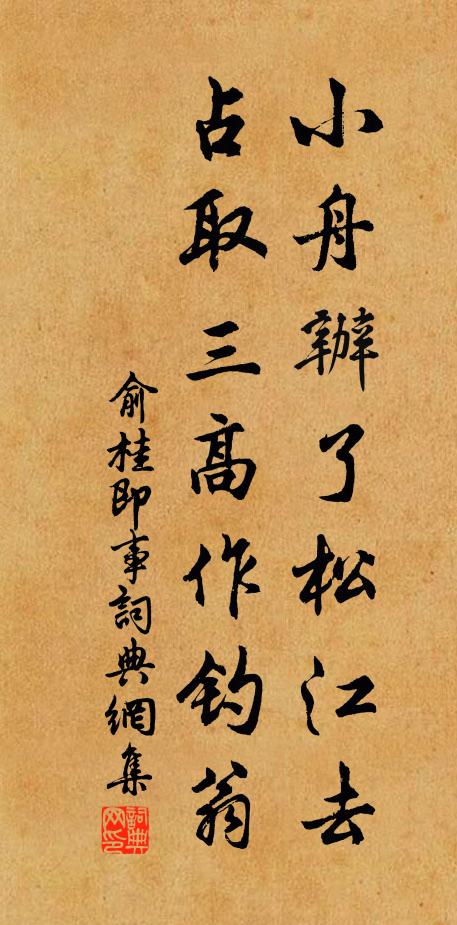 小舟辦了松江去
占取三高作钓翁
俞桂即事詞典網集
詞典网印